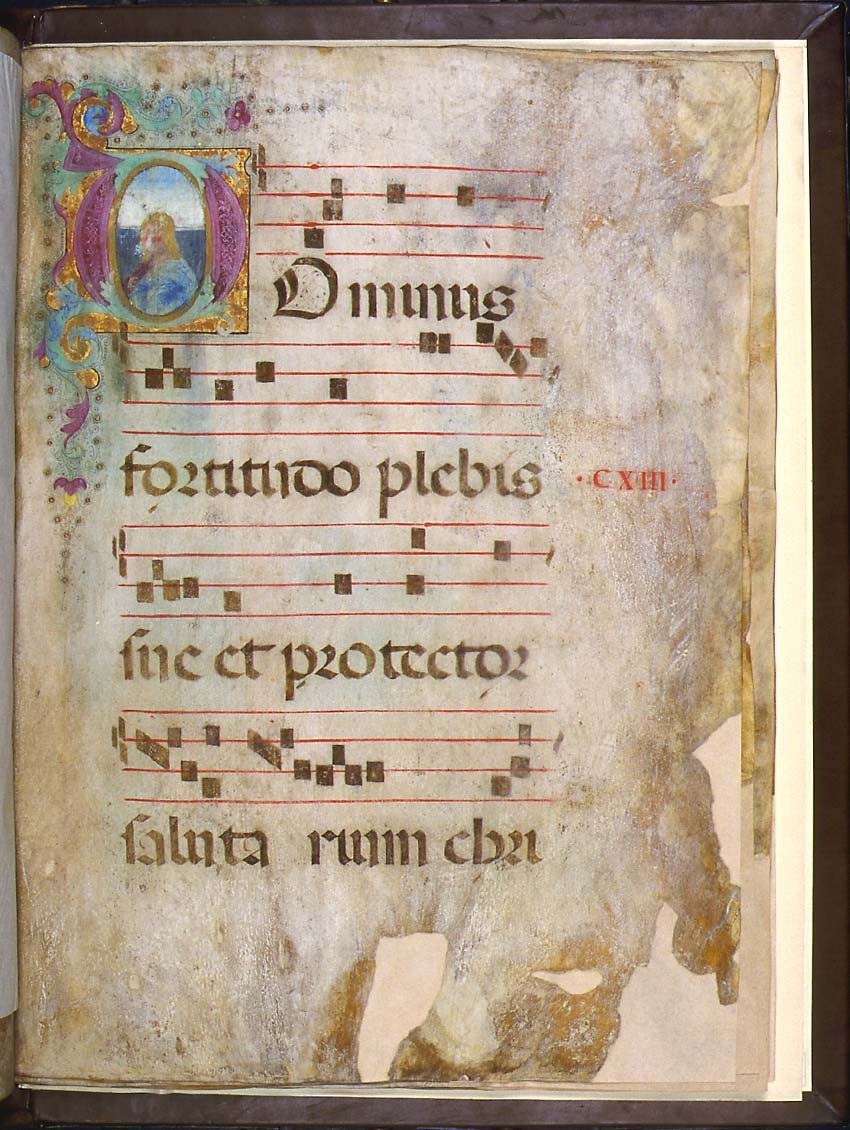 DOminus
fortitudo plebis
·CXIII·
sue et protector
saluta rium chri